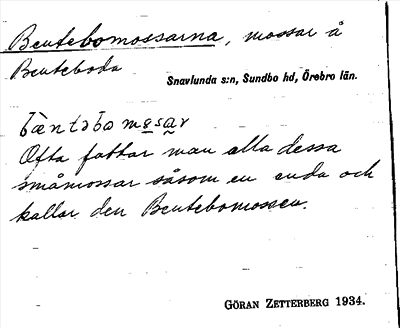 Bentebomossarna, mossar å
Benteboda
Snavlunda s:n, Sundbo hd, Örebro län.
bèntəbo mosar
Ofta fattar man alla dessa
småmossar såsom en enda och
kallar den Bentebomossen.
GÖRAN ZETTERBERG 1934.